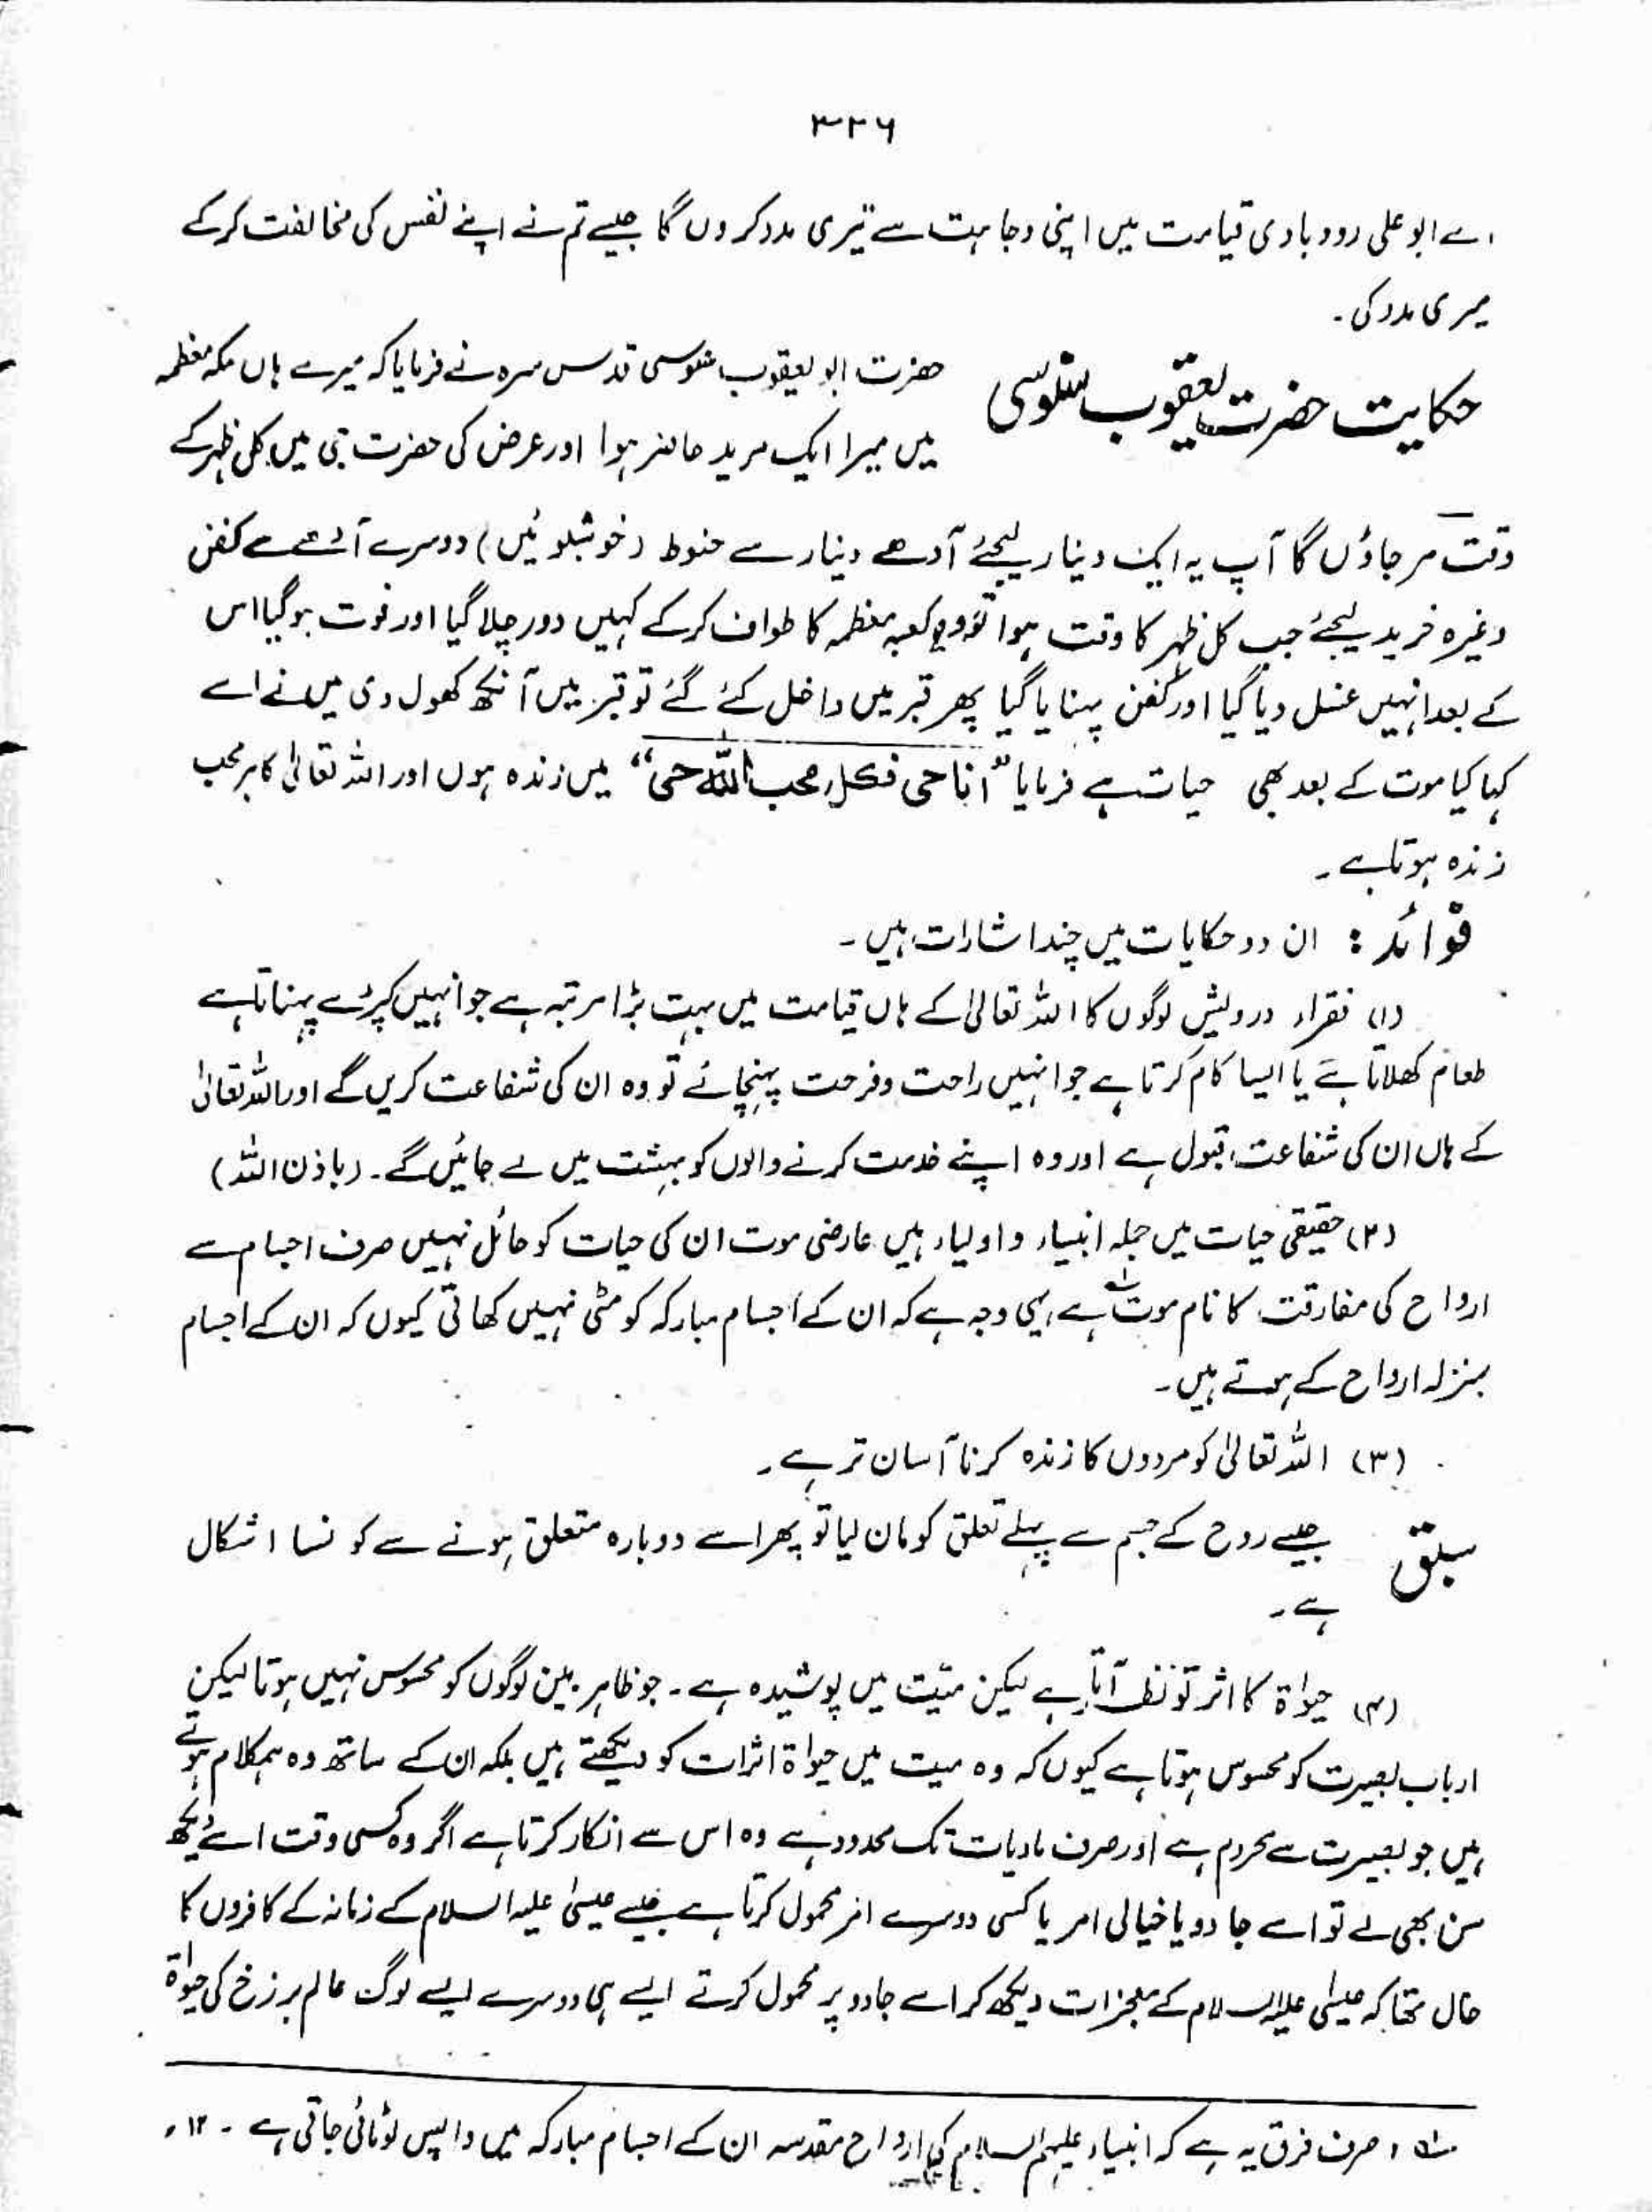 ۳۲۶
اے ابو علی رودبادی قیامت میں اپنی وجاہت سے تیری مدد کروں گا جیسے تم نے اپنے نفس کی مخالفت کر کے
میری مدد کی۔
حکایت حضرت یعقوب سنوسی
حضرت ابو یعقوب سنوسی قدس سرہ نے فرمایا کہ میرے ہاں مکہ معظمہ
میں میرا ایک مرید حاضر ہوا اور عرض کی حضرت جی میں کل ظہر کے
وقت مر جاؤں گا آپ یہ ایک دینار لیجئے آدھے دینار سے حنوط (خوشبوئیں) دوسرے آدھے سے کفن
وغیرہ خرید لیجئے جب کل ظہر کا وقت ہوا تو وہ کعبہ معظمہ کا طواف کر کے کہیں دور چلا گیا اور فوت ہو گیا اس
کے بعد انہیں غسل دیا گیا اور کفن پہنایا گیا پھر قبر میں داخل کئے گئے تو قبر میں آنکھ کھول دی میں نے اسے
کہا کیا موت کے بعد بھی حیات ہے فرمایا "انا حی فکل محب اللہ حی" میں زندہ ہوں اور اللہ تعالیٰ کا ہر محب
زندہ ہوتا ہے۔
فوائد : ان دو حکایات میں چند اشارات ہیں۔
(۱) فقراء درویش لوگوں کا اللہ تعالیٰ کے ہاں قیامت میں بہت بڑا مرتبہ ہے جو انہیں کپڑے پہناتا ہے
طعام کھلاتا ہے یا ایسا کام کرتا ہے جو انہیں راحت و فرحت پہنچائے تو وہ ان کی شفاعت کریں گے اور اللہ تعالیٰ
کے ہاں ان کی شفاعت قبول ہے اور وہ اپنے خدمت کرنے والوں کو بہشت میں لے جائیں گے۔ (باذن اللہ)
(۲) حقیقی حیات میں جملہ انبیاء و اولیاء ہیں عارضی موت ان کی حیات کو حائل نہیں صرف اجسام سے
ارواح کی مفارقت کا نام موت ؎۱ ہے یہی وجہ ہے کہ ان کے اجسام مبارکہ کو مٹی نہیں کھاتی کیوں کہ ان کے اجسام
بمنزلہ ارواح کے ہوتے ہیں۔
(۳) اللہ تعالیٰ کو مردوں کا زندہ کرنا آسان تر ہے۔
سبق جیسے روح کے جسم سے پہلے تعلق کو مان لیا تو پھر اسے دوبارہ متعلق ہونے سے کونسا اشکال
ہے۔
(۴) حیوٰۃ کا اثر تو نظر آتا ہے لیکن میّت میں پوشیدہ ہے۔ جو ظاہر بین لوگوں کو محسوس نہیں ہوتا لیکن
ارباب بصیرت کو محسوس ہوتا ہے کیوں کہ وہ میت میں حیواۃ اثرات کو دیکھتے ہیں بلکہ ان کے ساتھ وہ ہمکلام ہوتے
ہیں جو بصیرت سے محروم ہے اور صرف مادیات تک محدود ہے وہ اس سے انکار کرتا ہے اگر وہ کسی وقت اسے دیکھ
سن بھی لے تو اسے جادو یا خیالی امر یا کسی دوسرے امر محمول کرتا ہے جیسے عیسیٰ علیہ السلام کے زمانہ کے کافروں کا
حال تھا کہ عیسیٰ علیہ السلام کے معجزات دیکھ کر اسے جادو پر محمول کرتے ایسے ہی دوسرے ایسے لوگ عالم برزخ کی حیوٰۃ
؎۱ ، صرف فرق یہ ہے کہ انبیاء علیہم السلام کی ارواح مقدسہ ان کے اجسام مبارکہ میں واپس لوٹائی جاتی ہے۔ ۱۲،